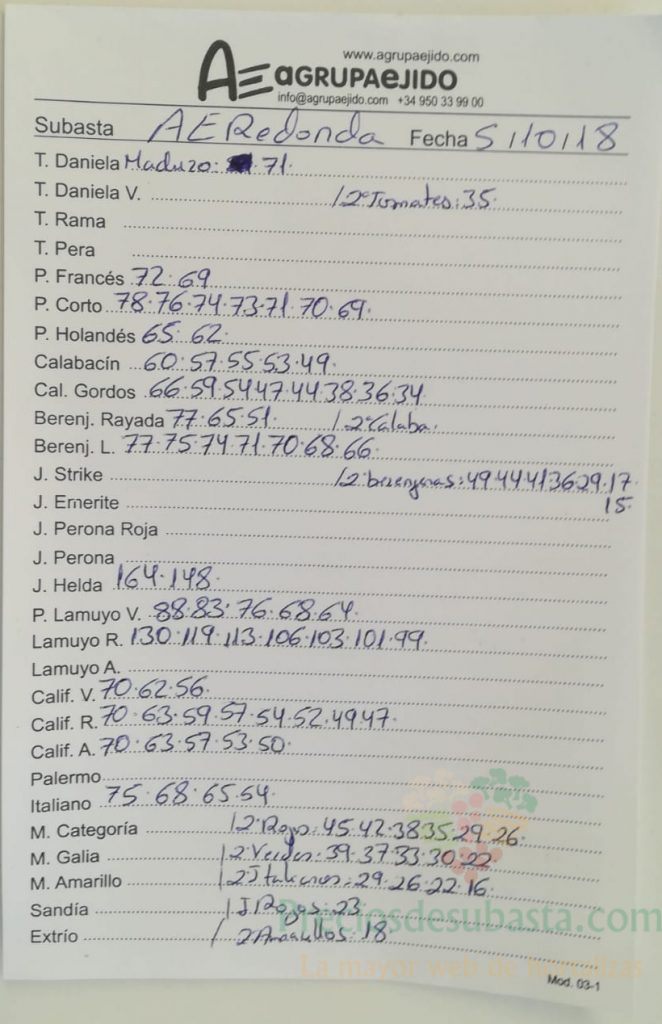 www.agrupaejido.com
AE AGRUPAEJIDO
info@agrupaejido.com +34 950 33 99 00
Subasta AE Redonda Fecha 5/10/18
T. Daniela Maduro: 71.
T. Daniela V. /2ªTomates:35.
T. Rama
T. Pera
P. Francés 72.69
P. Corto 78.76.74.73.71.70.69.
P. Holandés 65.62.
Calabacín 60.57.55.53.49.
Cal. Gordos 66.59.54.47.44.38.36.34.
Berenj. Rayada 77.65.51. /2ªCalaba.
Berenj. L. 77.75.74.71.70.68.66.
J. Strike /2ªberenjenas:49.44.41.36.29.17.
J. Emerite 15.
J. Perona Roja
J. Perona
J. Helda 164.148.
P. Lamuyo V. 88.83.76.68.64.
Lamuyo R. 130.119.113.106.103.101.99.
Lamuyo A.
Calif. V. 70.62.56.
Calif. R. 70.63.59.57.54.52.49.47.
Calif. A. 70.63.57.53.50.
Palermo
Italiano 75.68.65.54.
M. Categoría /2ªRojo:45.42.38.35.29.26.
M. Galia /2ªVerdes:39.37.33.30.22
M. Amarillo /2ªItalianos:29.26.22.16.
Sandía /I Rojos:23
Extrío /2ªAmarillos.18
Preciosdesubasta.com
La mayor web de hortalizas
Mod. 03-1